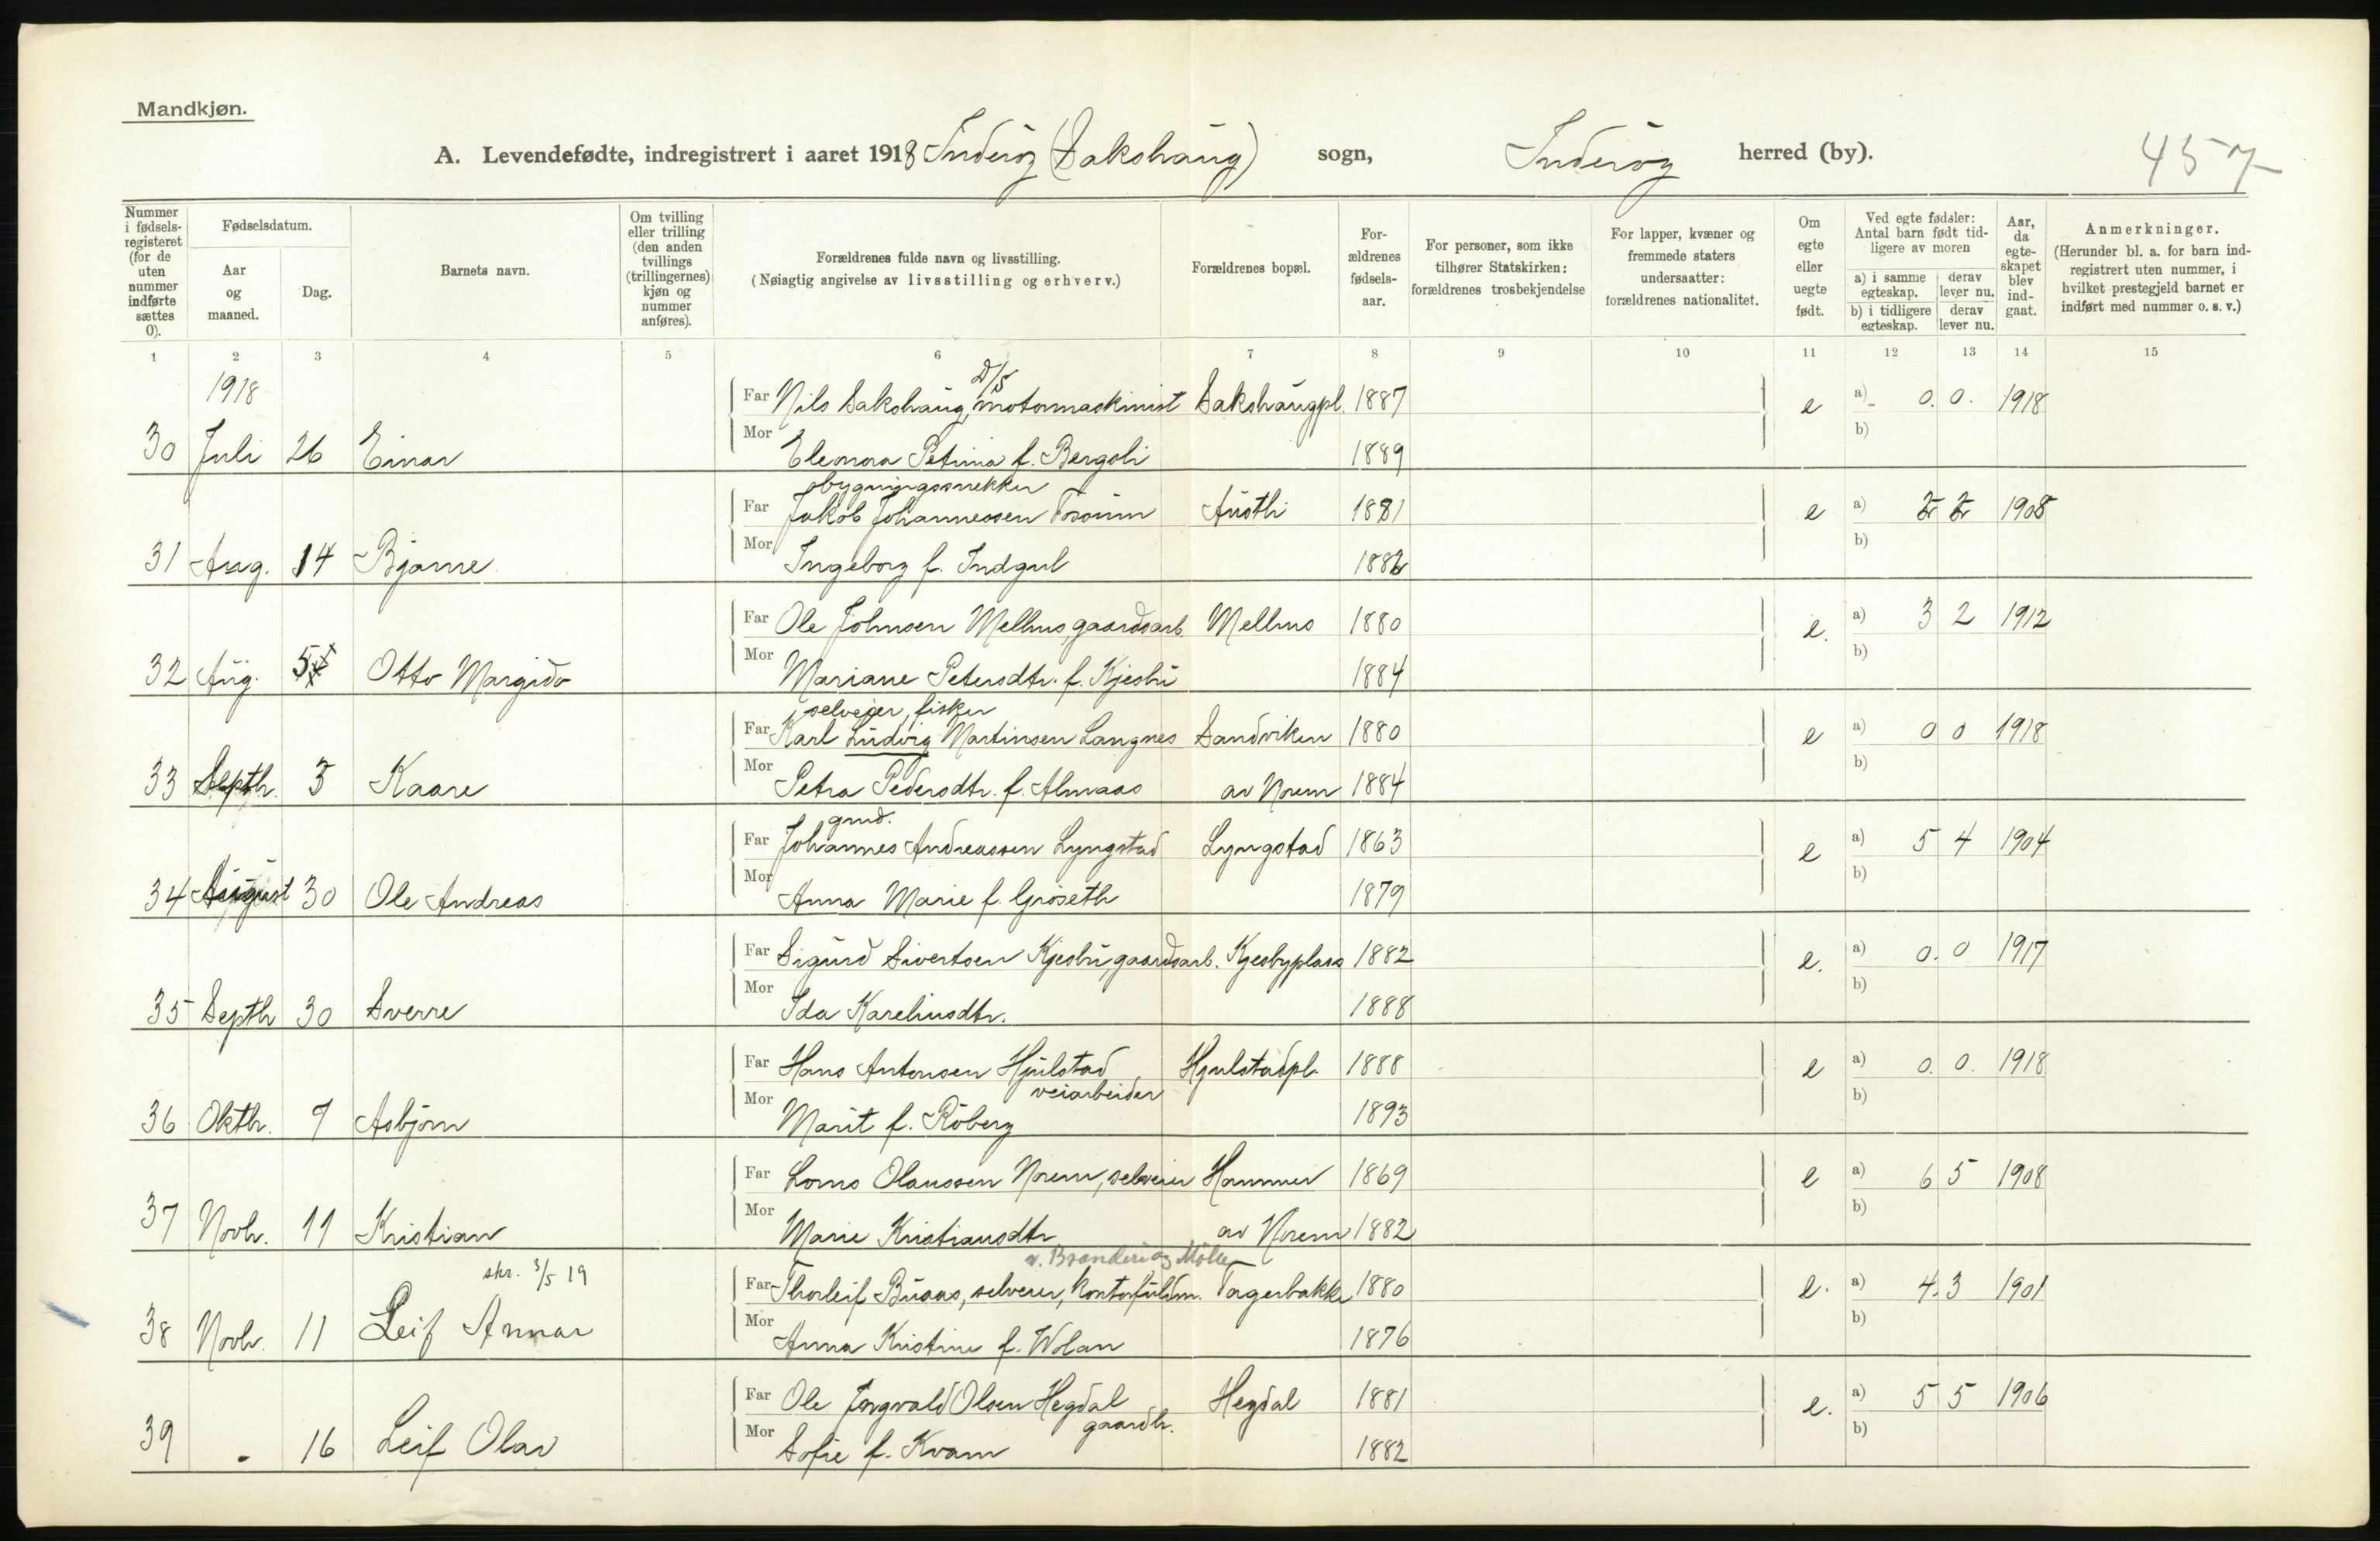 Mandkjøn.
A. Levendefødte, indregistrert i aaret 1918 Inderøy (Sakshaug) sogn, Inderøy herred (by). 457
Nummer i fødsels-registeret (for de uten nummer indførte sættes 0).
Fødselsdatum.
Aar og maaned.
Dag.
Barnets navn.
Om tvilling eller trilling (den anden tvillings (trillingernes) kjøn og nummer anføres).
Forældrenes fulde navn og livsstilling.
(Nøiagtig angivelse av livsstilling og erhverv.)
Forældrenes bopæl.
For-ældrenes fødsels-aar.
For personer, som ikke tilhører Statskirken: forældrenes trosbekjendelse
For lapper, kvæner og fremmede staters undersaatter: forældrenes nationalitet.
Om egte eller uegte født.
Ved egte fødsler: Antal barn født tid-ligere av moren
a) i samme egteskap. derav lever nu.
b) i tidligere egteskap. derav lever nu.
Aar, da egte-skapet blev ind-gaat.
Anmerkninger.
(Herunder bl. a. for barn ind-registrert uten nummer, i hvilket prestegjeld barnet er indført med nummer o. s. v.)
1 2 3 4 5 6 7 8 9 10 11 12 13 14 15
1918
D/S
Far Nils Sakshaug, motormaskinist Sakshaugpl. 1887 e a) 0. 0. 1918
30 Juli 26 Einar Mor Eleonora Petrina f. Bergsli 1889 b)
bygningssnekker
Far Jakob Johannessen Trosum Austli 1881 e a) 2 2 1908
31 Aug. 14 Bjarne Mor Ingeborg f. Indgul 1882 b)
Far Ole Johnsen Melhus gaardsarb. Melhus 1880 e. a) 3 2 1912
32 Aug. 5 Otto Margido Mor Mariane Petersdtr. f. Kjesbu 1884 b)
selveier, fisker
Far Karl Ludvig Martinsen Langnes Sandviken 1880 e a) 0 0 1918
33 Septbr. 3 Kaare Mor Petra Pedersdtr. f. Almaas av Norem 1884 b)
grd.
Far Johannes Andreassen Lyngstad Lyngstad 1863 e a) 5 4 1904
34 August 30 Ole Andreas Mor Anna Marie f. Grøseth 1879 b)
Far Sigurd Sivertsen Kjesbu gaardsarb. Kjesbyplass 1882 e. a) 0. 0 1917
35 Septbr 30 Sverre Mor Ida Kareliusdtr. 1888 b)
Far Hans Antonsen Hjulstad Hjulstadpl. 1888 e a) 0. 0. 1918
veiarbeider
36 Oktbr. 7 Asbjørn Mor Marit f. Røberg 1893 b)
Far Lorns Olaussen Norem, selveier Hammer 1869 e a) 6 5 1908
37 Novbr. 11 Kristian Mor Marie Kristiansdtr av Norem 1882 b)
v. Brænderi og Mølle
skr. 3/5 19
Far Thorleif Buaas, selveier, kontorfuldm. Tagerbakke 1880 e. a) 4. 3 1901
38 Novbr. 11 Leif Annar Mor Anna Kristine f. Wolan 1876 b)
Far Ole Ingvald Olsen Hegdal Hegdal 1881 e. a) 5 5 1906
gaardbr.
39 " 16 Leif Olav Mor Sofie f. Kvam 1882 b)